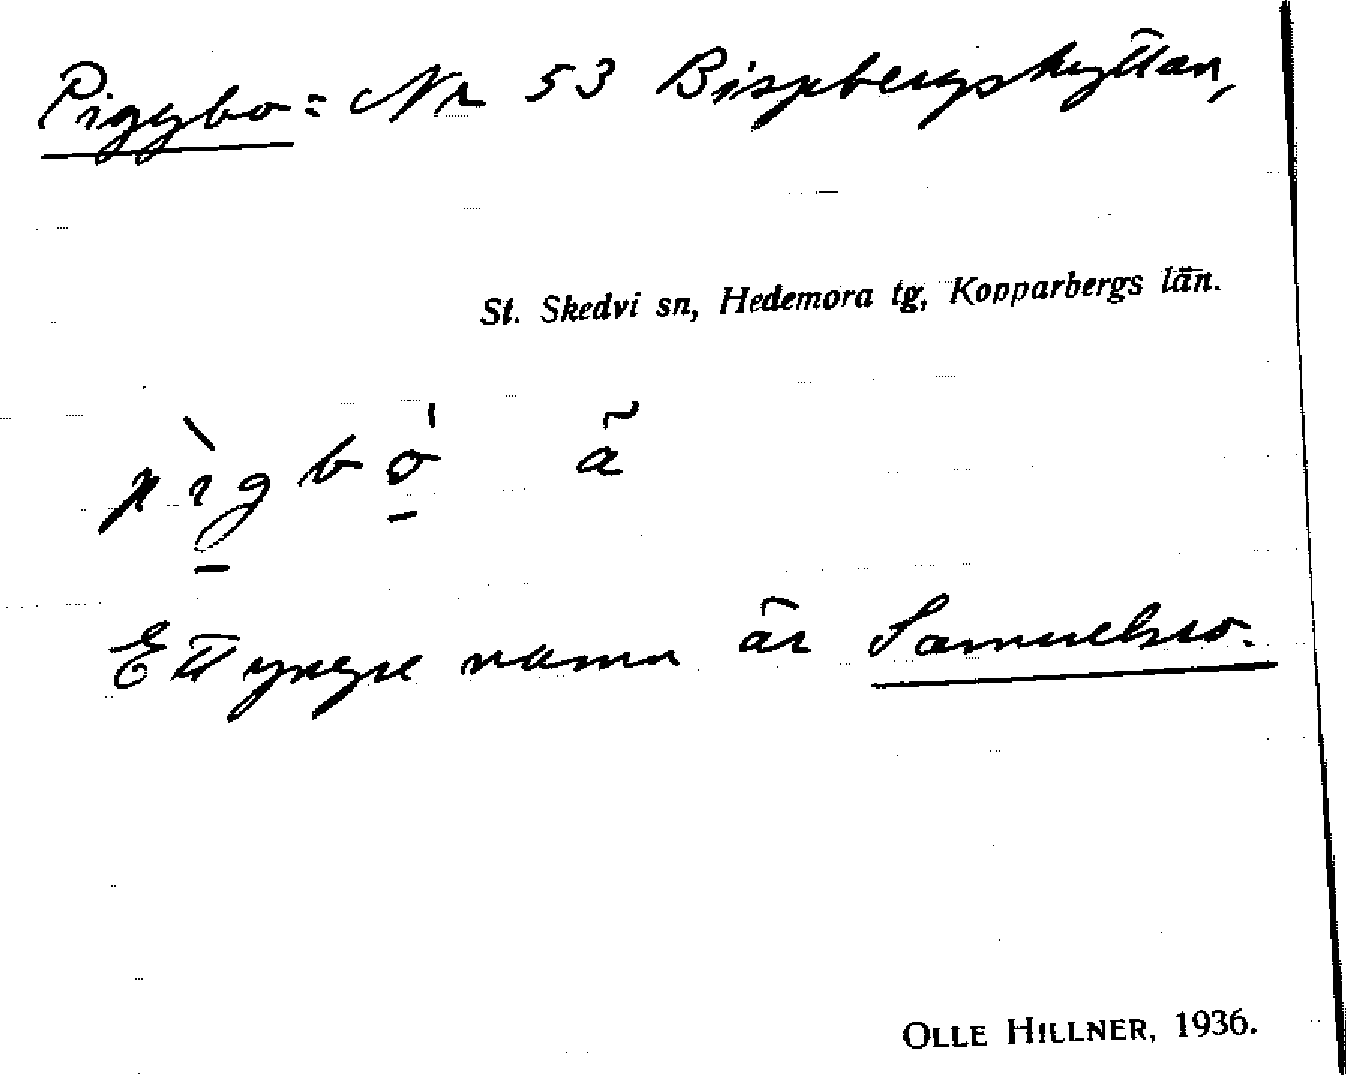 Piggbo = Nr 53 Bispbergshyttan,
St. Skedvi sn, Hedemora tg, Kopparbergs län.
pìgbo̠ ̍ å̃
Ett yngre namn är Samuelsro.
OLLE HILLNER, 1936.